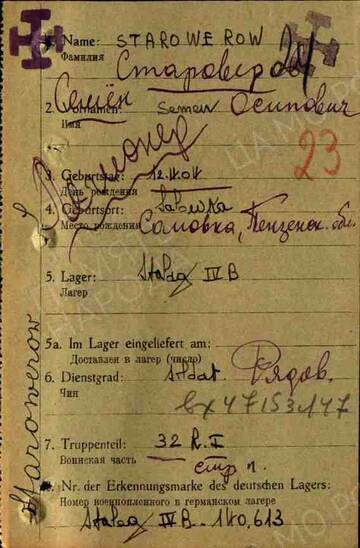 1. Name: STAROWEROW
Фамилия Староверов
2. Vornamen: Semen Осипович
Имя Семён
3. Geburtstag: 12.IV.04
День рождения
4. Geburtsort: Salowka
Место рождения Саловка, Пензенск. обл.
5. Lager: Stalag IV B
Лагер
5a. Im Lager eingeliefert am:
Доставлен в лагер (число)
6. Dienstgrad: Soldat Рядов.
Чин
вх 47153.147
7. Truppenteil: 32 R.I
Воинская часть стр п.
8. Nr. der Erkennungsmarke des deutschen Lagers:
Номер военнопленного в германском лагере
Stalag IV B - 140,613
23
Starowerow